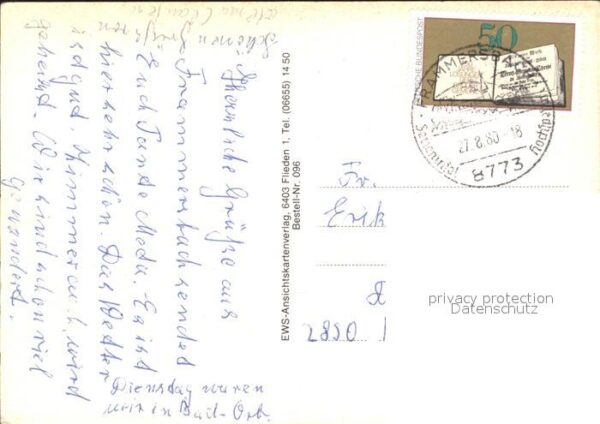 Herzliche Grüße aus
Frammersbach sendet
Euch Tante Meda. Es ist
hier sehr schön. Das Wetter
ist gut. Zimmer u. h. wird
geheizt. Wir sind schon viel
gewandert.
Dienstag waren
wir in Bad-Orb.
Schönen Gruß von
EWS-Ansichtskartenverlag, 6403 Flieden 1, Tel. (06655) 14 50
Bestell-Nr. 096
DEUTSCHE BUNDESPOST
50
FRAMMERSBACH
27.8.80-18
8773
Fr.
Erik
2850 1
privacy protection
Datenschutz